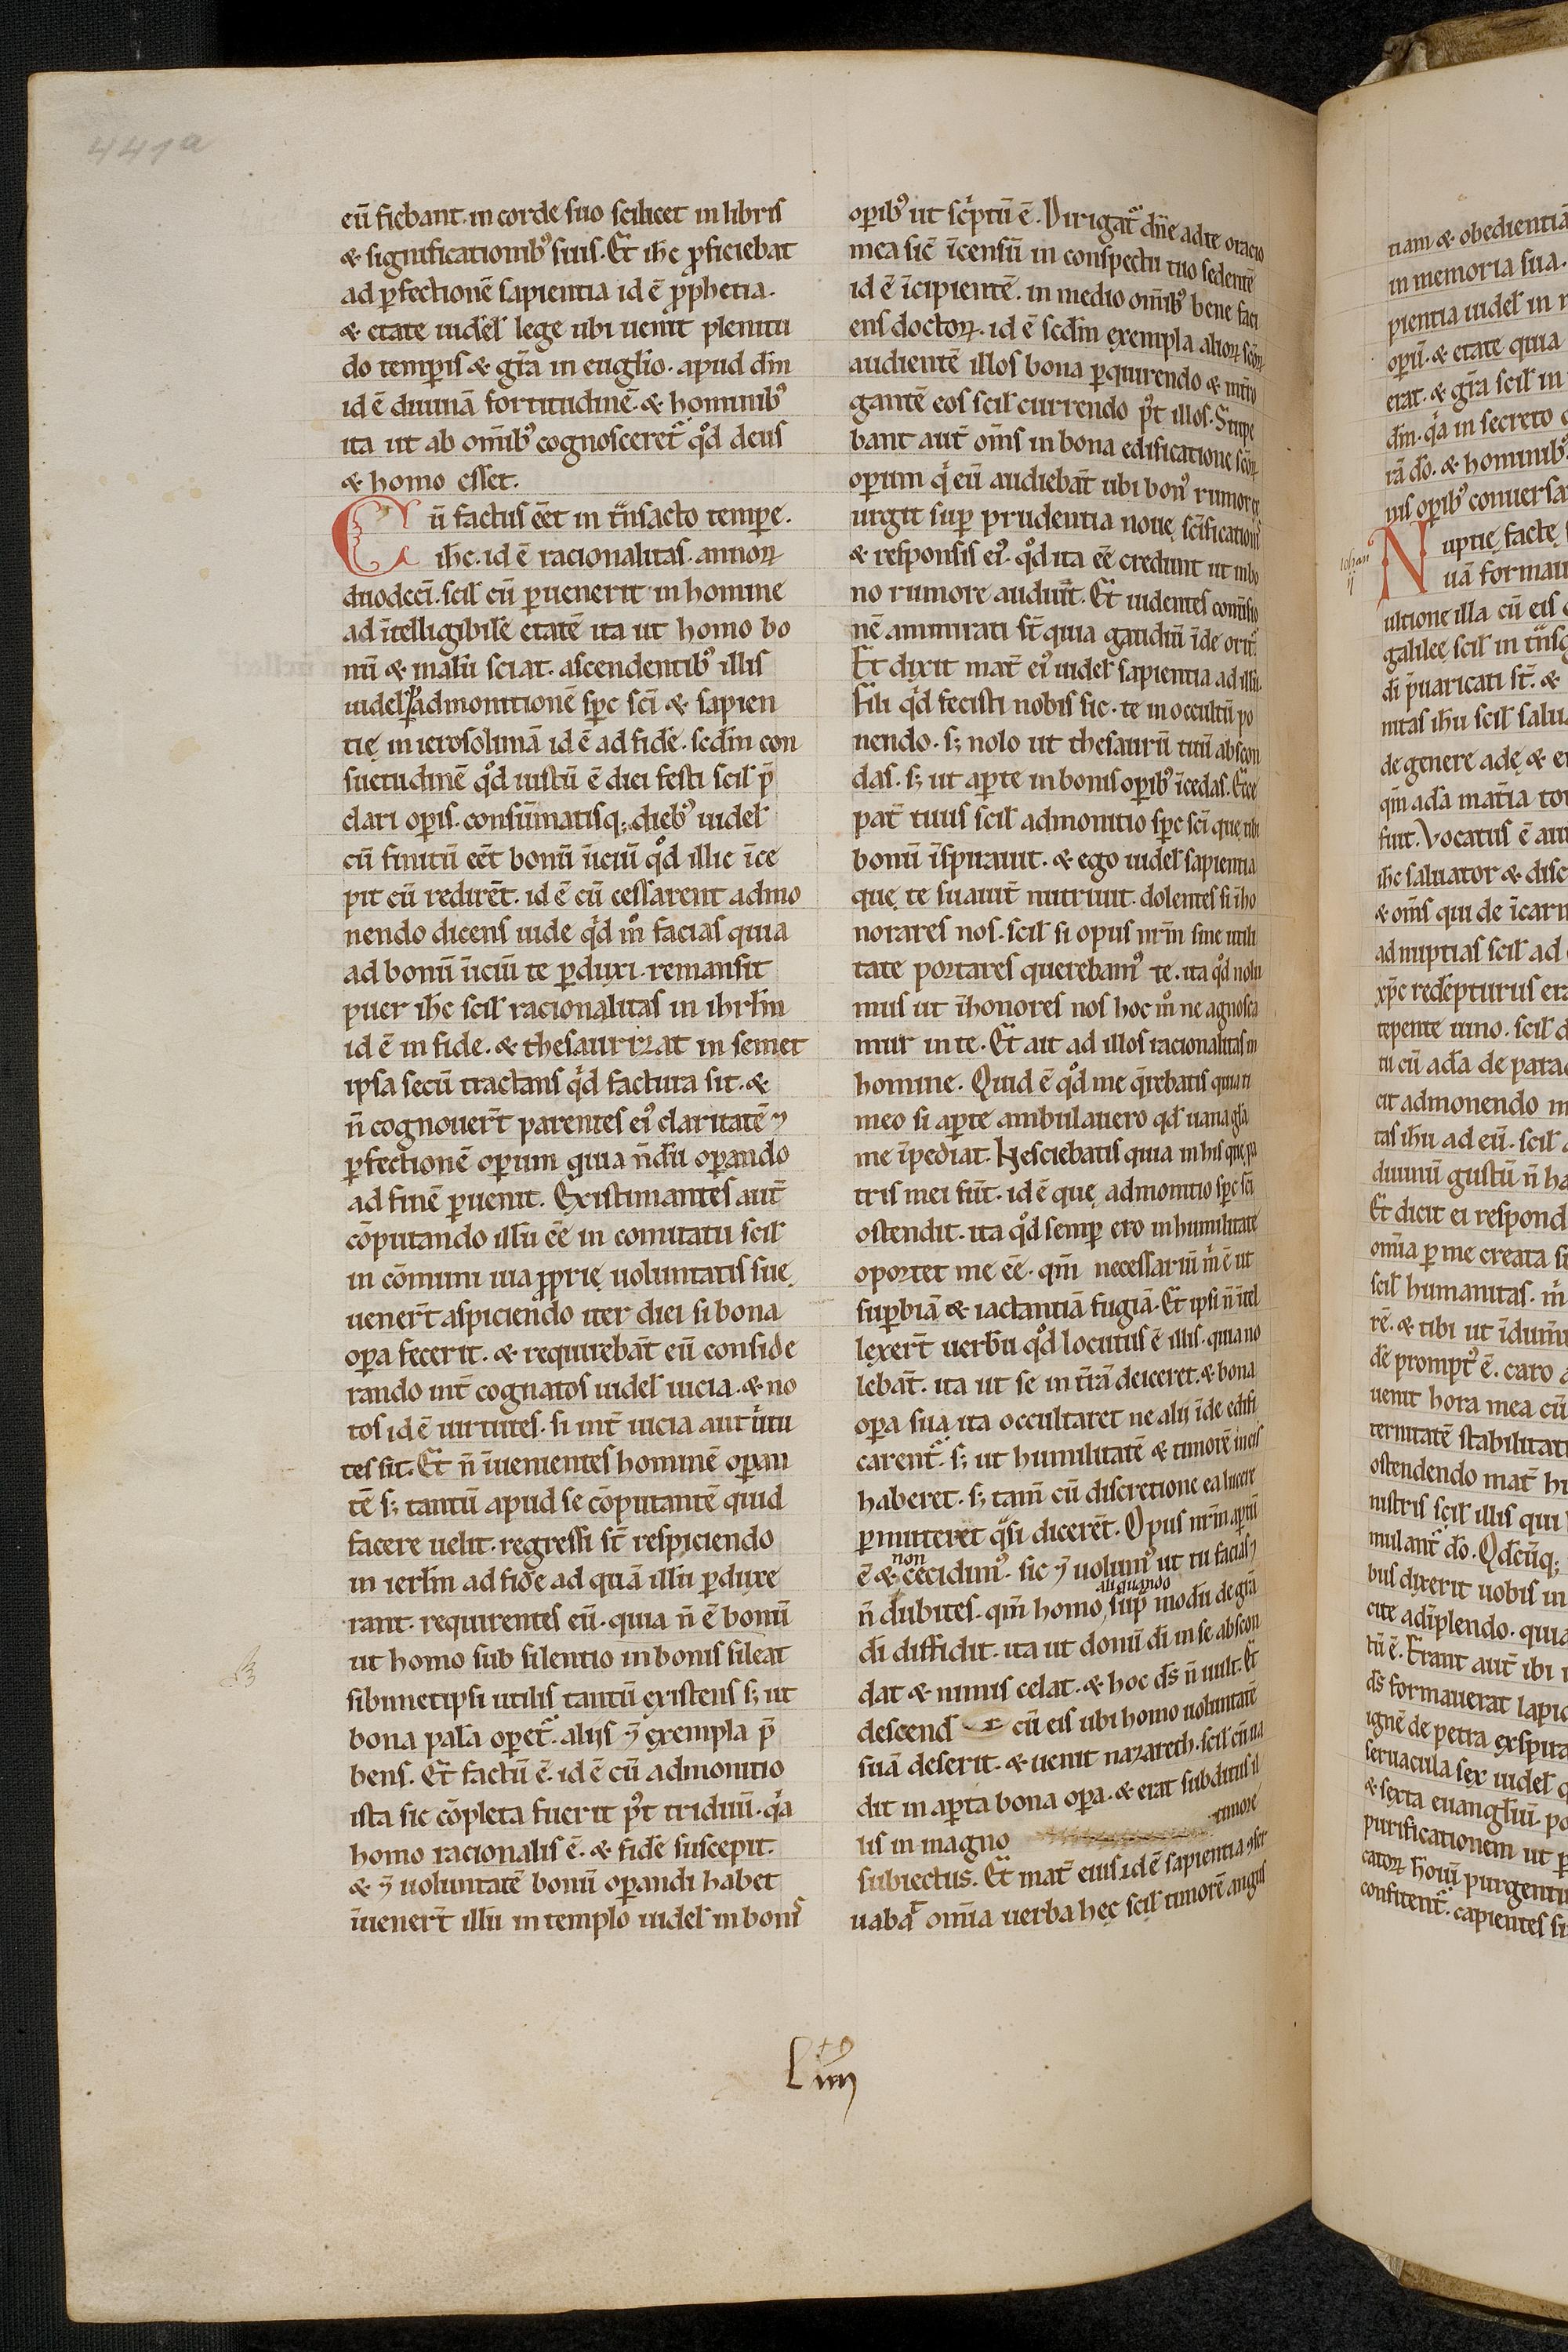 441a
eū fiebant. in corde suo scilicet in libris
& significationibꝰ suis. Et ihc ꝓficiebat
ad ꝑfectionē sapientia id ē ꝓphetia.
& etate uidel' lege ubi uenit plenitu
do temꝑis & gr̄a in euglio. apud dm̄
id ē diuinā fortitudinē. & hominibꝰ
ita ut ab om̄ibꝰ cognosceret᷑ qd̊ deus
& homo esset.
Cū factus eēt in t̄nsacto tempe.
ihc. id ē racionalitas. annoꝝ
duodecī. scil' cū ꝑuenerit in homine
ad ītelligibilē etatē ita ut homo bo
nū & malū sciat. ascendentibꝰ illis
uidel' ꝑ admonitionē spc sci & sapien
tię in ierosolimā id ē ad fidē. scdm con
suetudinē qd̊ iustū ē diei festi scil' p̄
clari opis. consūmatisq; diebꝰ uidel'
cū finitū eēt bonū īiciū qd̊ illic īce
pit cū redirēt. id ē cū cessarent admo
nendo dicens uide qd m̊ facias quia
ad bonū īiciū te ꝑduxi. remansit
puer ihc scil' racionalitas in ihrlm
id ē in fide. & thesaurizat in semet
ipsa secū tractans qd factura sit. &
n̄ cognouer̄t parentes eiꝰ claritatē ⁊
ꝑfectionē operum quia n̄dū oꝑando
ad finē ꝑuenit. Existimantes aut̄
cōputando illū eē in comitatu scil'
in cōmuni uia ꝓprię uoluntatis suę
uener̄t aspiciendo iter diei si bona
oꝑa fecerit. & requirebāt eū conside
rando int̄ cognatos uidel' uicia. & no
tos id ē uirtutes. si int̄ uicia aut uirtu
tes sit. Et n̄ īuenientes hominē oꝑan
tē s; tantū apud se cōputantē quid
facere uelit. regressi st̄ respiciendo
in ierlm ad fidē ad quā illū ꝑduxe
rant. requirentes eū. quia n̄ ē bonū
ut homo sub silentio in bonis sileat
sibimetipsi utilis tantū existens s; ut
bona palā oꝑet᷑. alijs ⁊ exempla p̄
bens. Et factū ē. id ē cū admonitio
ista sic cōpleta fuerit pꝰt triduū. qa
homo racionalis ē. & fidē suscepit.
& ⁊ uoluntatē bonū oꝑandi habet
īuener̄t illū in templo uidel' in bonis
oꝑibꝰ ut sc̄ptū ē. Dirigat᷑ dn̄e ad te oracio
mea sic̄ īcensū in conspectu tuo sedentē
id ē īcipientē. in medio om̄ibꝰ bene faci
ens doctoꝝ. id ē scdm exempla alioꝝ scōꝝ
audientē illos bona ꝑquirendo & int̄ro
gantē eos scil' currendo pꝰt illos. Stupe
bant aut̄ om̄s in bona edificatione scōꝝ
operum q eū audiebāt ubi bonꝰ rumor ex
urgit suꝑ prudentia nouę scificationis
& responsis eiꝰ. qd̊ ita eē credunt ut in bo
no rumore audiūt. Et uidentes
nē ammirati st̄ quia gaudiū īde orit᷑.
Et dixit mat̄ eiꝰ uidel' sapientia ad illū.
Fili qd fecisti nobis sic. te in occultū po
nendo. s; nolo ut thesaurū tuū abscon
das. s; ut aꝑte in bonis oꝑibꝰ īcedas. Ecce
pat̄ tuus scil' admonitio spc sci que tibi
bonū īspirauit. & ego uidel' sapientia
quę te suauit̄ nutriuit. dolentes si iho
norares nos. scil' si opus nr̄m sine utili
tate portares querebamꝰ te. ita qd̊ nolu
mus ut īhonores nos hoc m̊ ne agnosca
mur in te. Et ait ad illos racionalitas in
homine. Quid ē qd̊ me q̄rebatis quia ti
meo si aꝑte ambulauero qd' uana gl'a
me īpediat. Nesciebatis quia in his que pa
tris mei sūt. id ē quę admonitio spc sci
ostendit. ita qd̊ semꝑ ero in humilitate
oportet me eē. qm̄ necessariū m̄ ē ut
suꝑbiā & iactantiā fugiā. Et ipsi n̄ ītel
lexer̄t uerbū qd̊ locutus ē illis. quia no
lebāt. ita ut se in tr̄ā deiceret. & bona
oꝑa sua ita occultaret ne alij īde edifi
carent᷑. s; ut humilitatē & timorē in eis
haberet. s; tam̄ cū discretione ea lucere
ꝑmitteret q̄si dicerēt. Opus nr̄m aꝑtū
ē & non cecidimꝰ. sic ⁊ uolumꝰ ut tu facias ⁊
n̄ dubites. qm̄ homo aliquando suꝑ modū de gr̄a
di diffidit. ita ut donū di in se abscon
dat & nimis celat. & hoc ds̄ n̄ uult. Et
descend it cū eis ubi homo uoluntatē
suā deserit. & uenit nazareth. scil' cū ua
dit in aꝑta bona oꝑa. & erat subditus il
lis in magno timore
subiectus. Et mat̄ eius id ē sapientia ꝯser
uabat omīa uerba hęc scil' timorē angus
Liiij
tiam & obedientiā
in memoria sua.
pientia uidel' in
oꝑū. & etate quia
erat. & gr̄a scil' in
dm̄. qa in secreto
rā do. & hominibꝰ
nis oꝑibꝰ conuersa
Iohan
ij
Nuptię factę
uā formau
ultione illa cū eis
galileę scil' in t̄nsg
di p̄uaricati st̄. &
nitas ihu scil' salua
de genere adę & e
qm̄ ada mat̄ia to
fuit. Vocatus ē au
ihc saluator & disc
& om̄s qui de īcarn
ad nuptias scil' ad
xpc redēpturus er
tepente uino. scil' d
tu cū ada de para
cit admonendo m
tas ihu ad eū. scil'
diuinū gustū n̄ ha
Et dicit ei respond
omīa ꝑ me creata s
scil' humanitas. m̄
rē. & tibi ut īdum
dē promptꝰ ē. caro
uenit hora mea cū
ternitatē stabilitat
ostendendo mat̄ hu
nistris scil' illis qui
mulant᷑ do. Qdcūq;
bus dixerit uobis in
cite adīplendo. quia
tū ē. Erant aut̄ ibi
ds̄ formauerat lapi
ignē de petra exspira
seruacula sex uidel'
& sexta euangliū. po
purificationem ut p
catoꝝ houū purgenti
confitent᷑. capientes si